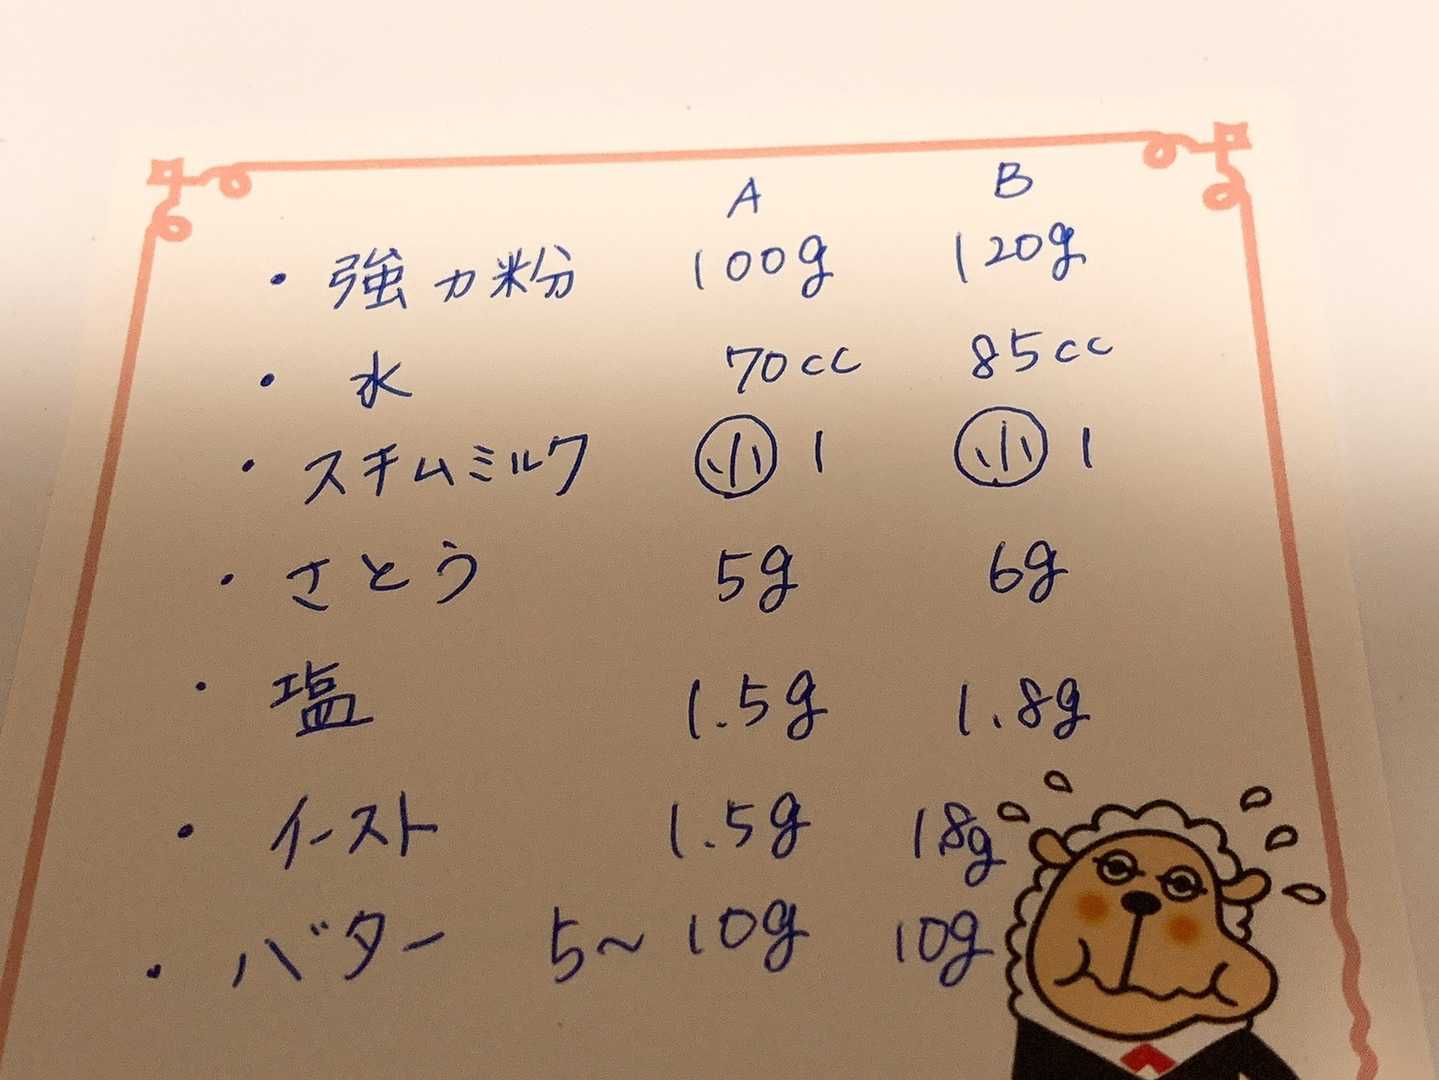 A B
・強力粉 100g 120g
・水 70cc 85cc
・スキムミルク 小 1 小 1
・さとう 5g 6g
・塩 1.5g 1.8g
・イースト 1.5g 1.8g
・バター 5~10g 10g